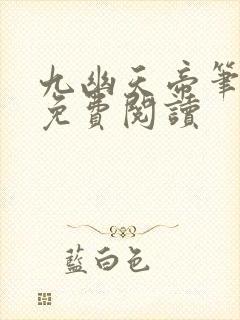 九幽天帝筆
免費閱讀
藍白色